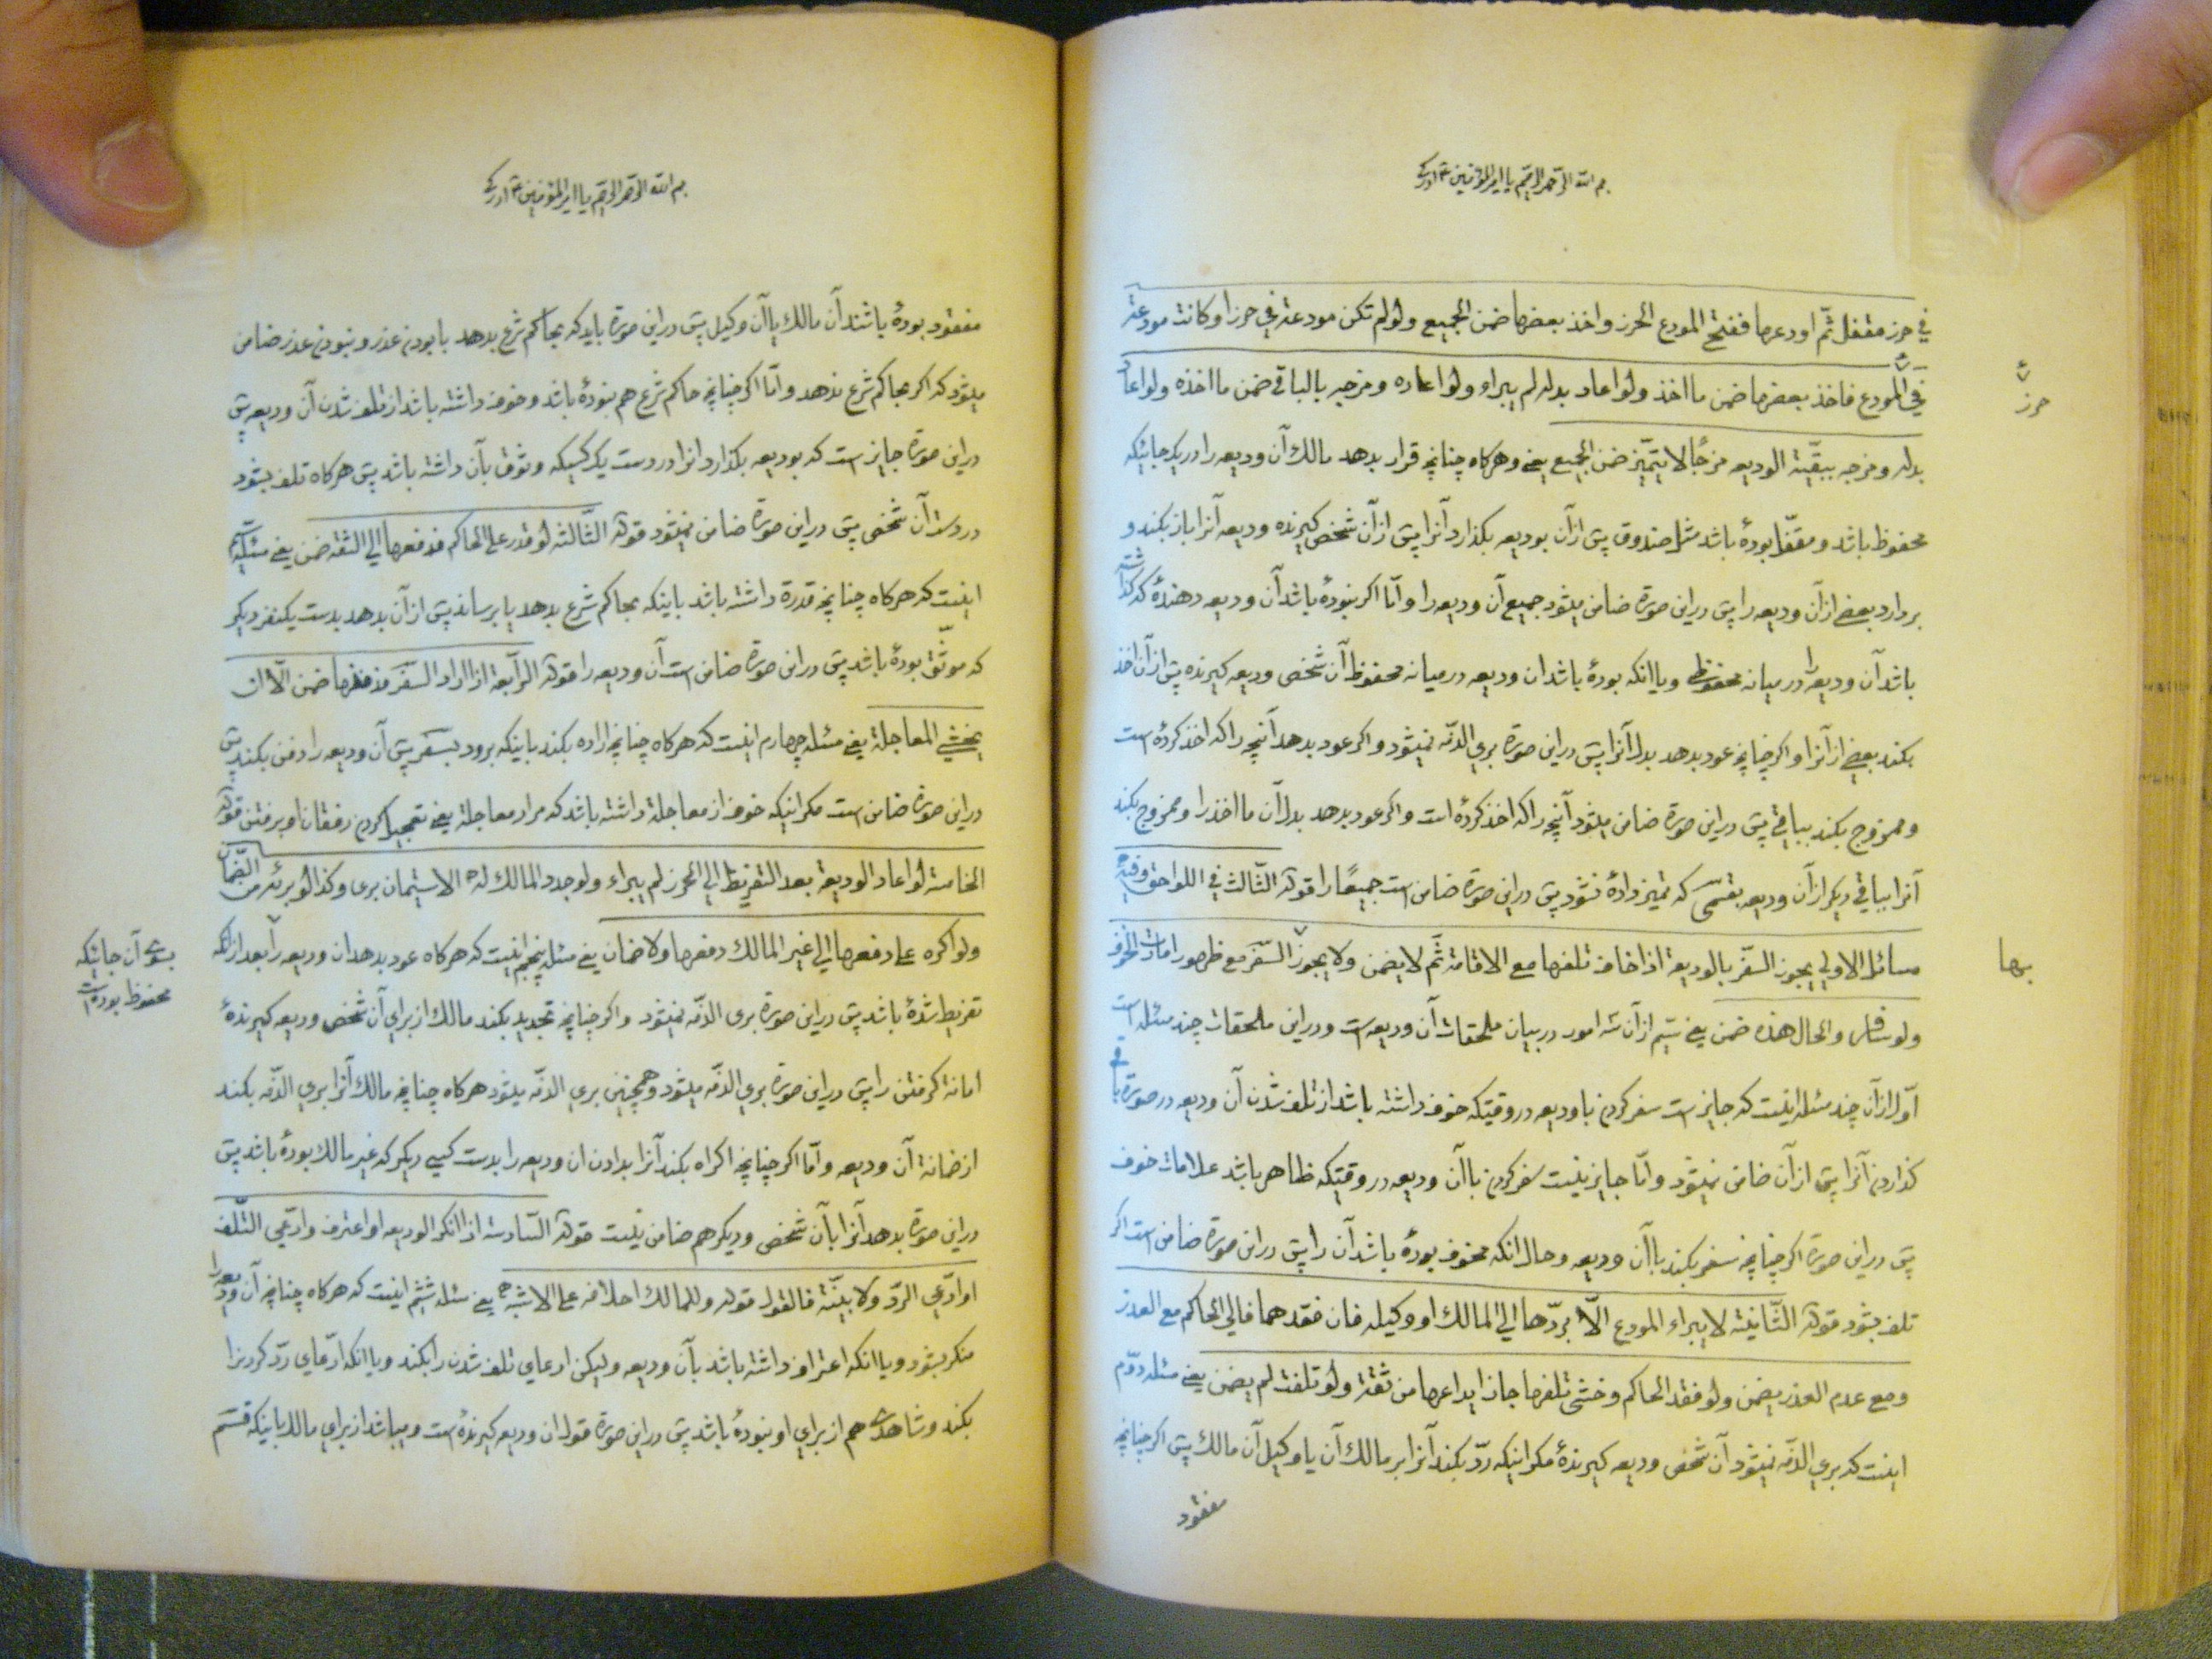 بسم الله الرحمن الرحیم یا امیر المؤمنین ع ادرکنی
في حرز مقفل ثمّ اودعها ففتح المودع الحرز واخذ بعضها ضمن الجمیع ولو لم تکن مودعة في حرز او کانت مودعة
في المودع فاخذ بعضها ضمن ما اخذ ولو اعاد بدله لم یبراء ولو اعاده ومزجه بالباقي ضمن ما اخذه ولو اعاد
حرز
بدله ومزجه ببقیّة الودیعه مزجًا لا یتمیّز ضمن الجمیع یعنی وهرکاه چنانچه قرار بدهد مالك آن ودیعه را در یك جائیکه
محفوظ باشد ومقفّل بودهٔ باشد مثل صندوق پس از آن بودیعه بکذارد آنرا پس از آن شخص کیرنده ودیعه آنرا باز بکند و
بردارد بعضی از آن ودیعه را پس در این صورة ضامن میشود جمیع آن ودیعه را وامّا اکر نبودهٔ باشد آن ودیعه دهندهٔ که کذاشته
باشد آن ودیعه را در میانه محفوظی ویا انکه بودهٔ باشد ان ودیعه در میانه محفوظ آن شخص ودیعه کیرنده پس از آن اخذ
بکند بعضی از آنرا واکر چنانچه عود بدهد بدل آنرا پس در این صورة بري الذمّه نمیشود واکر عود بدهد آنچه را که اخذ کردهٔ است
وممزوج بکند بباقي پس در این صورة ضامن میشود آنچه را که اخذ کردهٔ است واکر عود بدهد بدل آن ما اخذ را وممزوج بکند
آنرا بباقي دیکر از آن ودیعه بقسمی که تمیز دادهٔ نشود پس در این صورة ضامن است جمیعًا را قوله الثّالث في اللواحق وفیه
مسائل الاولي یجوز السفر بالودیعة اذا خاف تلفها مع الاقامة ثمّ لا یضمن ولا یجوز السّفر مع ظهور امارات الخوف
بها
ولو سافر والحال هذه ضمن یعنی سیّم از آن سه امور در بیان ملحقات آن ودیعه است ودر این ملحقات چند مسئله است
اوّل از آن چند مسئله اینست که جایز است سفر کردن با ودیعه در وقتیکه خوف داشته باشد از تلف شدن آن ودیعه در صورة باقی
کذاردن آنرا پس از آن ضامن نمیشود وامّا جایز نیست سفر کردن با آن ودیعه در وقتیکه ظاهر باشد علامات خوف
پس در این صورة اکر چنانچه سفر بکند با آن ودیعه وحال انکه مخوف بودهٔ باشد آن را پس در این صورة ضامن است اکر
تلف بشود قوله الثّانیة لا یبراء المودع الّا بردّها الي المالك او وکیله فان فقدهما فالي الحاکم مع العذر
ومع عدم العذر یضمن ولو فقد الحاکم وخشی تلفها جاز ایداعها من ثقة ولو تلفت لم یضمن یعنی مسئله دوّم
اینست که بري الذمّه نمیشود آن شخص ودیعه کیرندهٔ مکر اینکه ردّ بکند آنرا بر مالك آن یا وکیل آن مالك پس اکر چنانچه
مفقود
بسم الله الرحمن الرحیم یا امیر المؤمنین ع ادرکنی
مفقود بودهٔ باشند آن مالك یا آن وکیل پس در این صورة باید که بحاکم شرع بدهد با بودن عذر و نبودن عذر ضامن
میشود که اکر بحاکم شرع ندهد وامّا اکر چنانچه حاکم شرع هم نبودهٔ باشد وخوف داشته باشد از تلف شدن آن ودیعه پس
در این صورة جایز است که بودیعه بکذارد انرا در دست یك کسیکه وثوق بآن داشته باشد پس هرکاه تلف بشود
در دست آن شخص پس در این صورة ضامن نمیشود قوله الثّالثه لو قدر علی الحاکم فدفعها الي الثقه ضمن یعنی مسئله سیّم
اینست که هرکاه چنانچه قدرة داشته باشد باینکه بحاکم شرع بدهد یا برساند پس از آن بدهد بدست یکنفر دیکر
که موثّق بودهٔ باشد پس در این صورة ضامن است آن ودیعه را قوله الرّابعة اذا اراد السّفر فدفنها ضمن الّا ان
یخشي المعاجلة یعنی مسئله چهارم اینست که هرکاه چنانچه اراده بکند باینکه برود بسفر پس آن ودیعه را دفن بکند پس
در این صورة ضامن است مکر اینکه خوف از معاجلة داشته باشد که مراد معاجلة یعنی تعجیل کردن رفقان او برفتن قوله
الخامسة لو اعاد الودیعة بعد التفریط الي الحرز لم یبراء ولو جدد المالك له الاستیمان بری وکذا لو برئه من الضّمان
ولو اکره علی دفعها الي غیر المالك دفعها ولا ضمان یعنی مسئله پنجم اینست که هرکاه عود بدهد ان ودیعه را بعد از انکه
بسوی آن جائیکه
محفوظ بوده است
تفریط شدهٔ باشد پس در این صورة بری الذمّه نمیشود واکر چنانچه تجدید بکند مالك از برای آن شخص ودیعه کیرندهٔ
امانة کرفتن را پس در این صورة بري الذمّه میشود وهمچنین بري الذمّه میشود هرکاه چنانچه مالك آنرا بري الذمّه بکند
از ضمانة آن ودیعه وامّا اکر چنانچه اکراه بکند آنرا بدادن ان ودیعه را بدست کسی دیکر که غیر مالك بودهٔ باشد پس
در این صورة بدهد آنرا بآن شخص ودیکر هم ضامن نیست قوله السّادسة اذا انکر الودیعه او اعترف وادّعي التّلف
او ادّعي الردّ ولا بیّنة فالقول قوله وللمالك احلافه علی الاشبه یعنی مسئله ششم اینست که هرکاه چنانچه آن ودیعه را
منکر بشود ویا انکه اعتراف داشته باشد بآن ودیعه ولیکن ادعاي تلف شدن را بکند ویا انکه ادّعاي ردّ کردن را
بکند وشاهدی هم از براي او نبودهٔ باشد پس در این صورة قول ان ودیعه کیرندهٔ است ومیباشد از براي مالك باینکه قسم